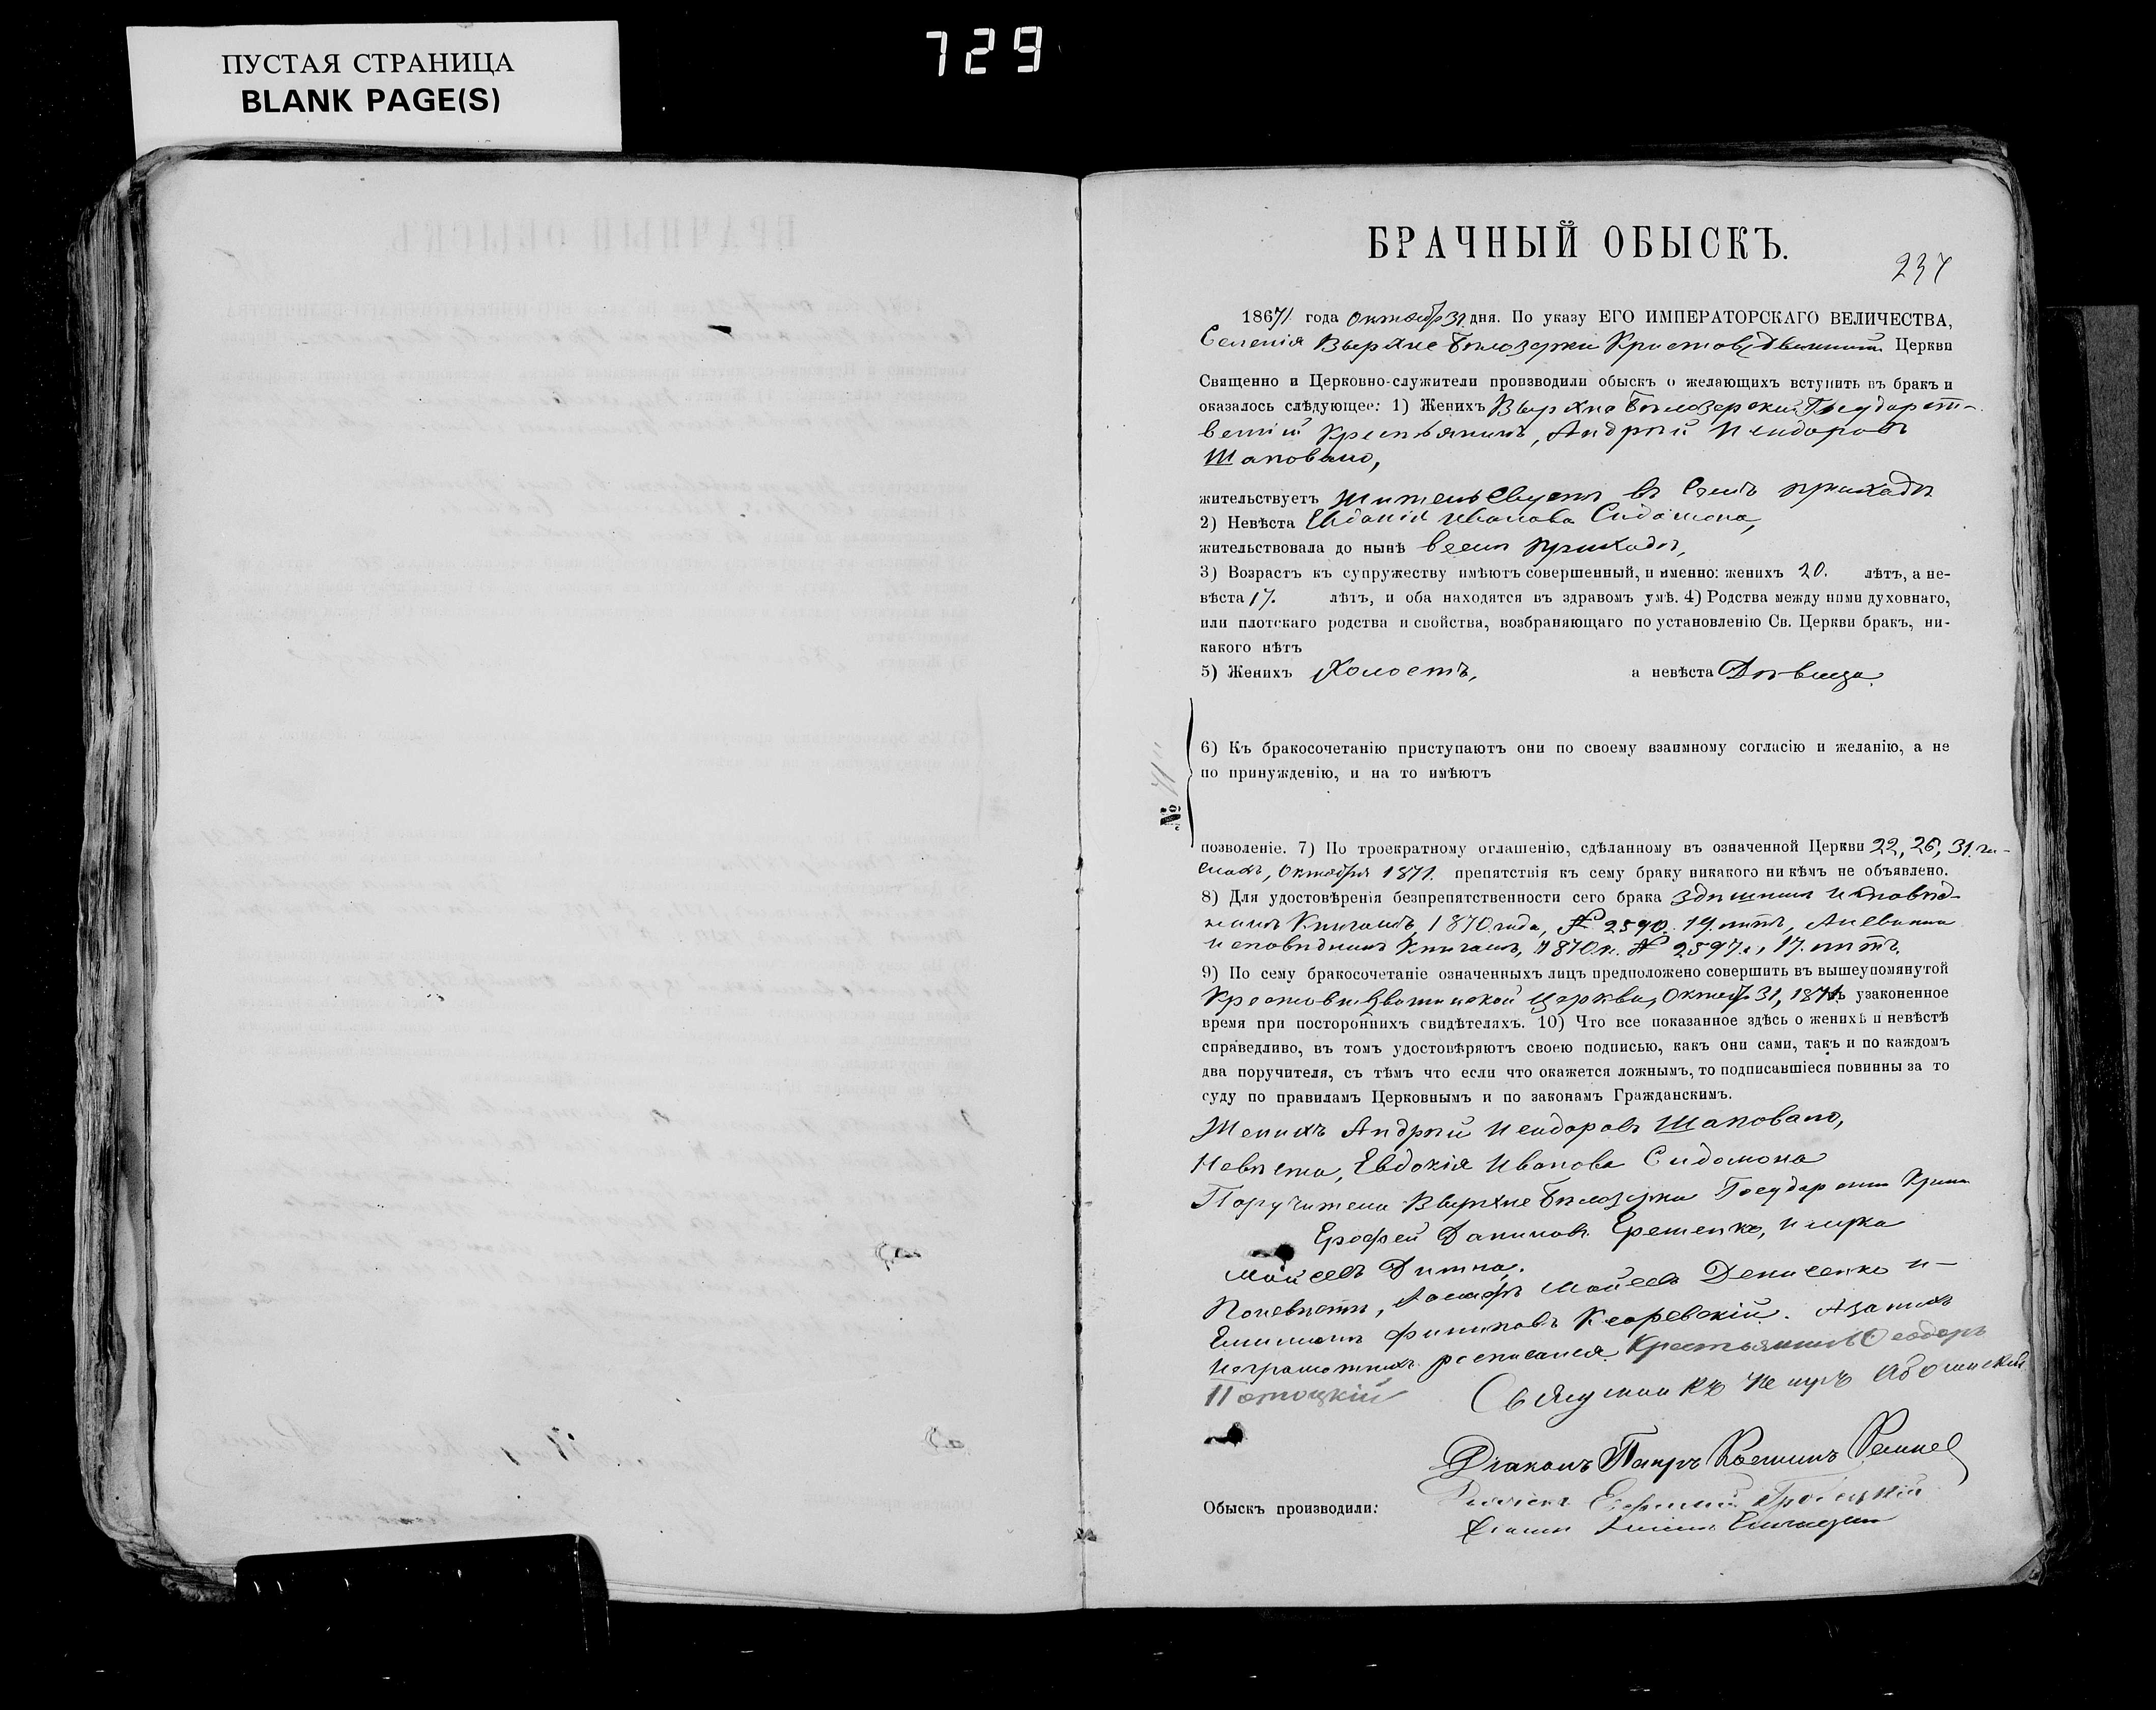 ПУСТАЯ СТРАНИЦА
BLANK PAGE(S)
729
БРАЧНЫЙ ОБЫСКЪ.
237
1871 года Октябр 31 дня. По указу ЕГО ИМПЕРАТОРСКАГО ВЕЛИЧЕСТВА,
Селенія Верхне Бѣлозерки Крестовоздвиженской Церкви
Священно и Церковно-служители производили обыскъ о желающихъ вступить въ бракъ и
оказалось слѣдующее: 1) Женихъ Верхне Бѣлозерскій Государст-
венній Крестьянинъ, Андрѣй Исидоровъ
Шаповало,
жительствуетъ жительствуетъ в семъ приходѣ
2) Невѣста Евдокія Иванова Сидомона,
жительствовала до нынѣ всемъ приходѣ,
3) Возрастъ къ супружеству имѣютъ совершенный, и именно: женихъ 20. лѣтъ, а не-
вѣста 17. лѣтъ, и оба находятся въ здравомъ умѣ. 4) Родства между ними духовнаго,
или плотскаго родства и свойства, возбраняющаго по установленію Св. Церкви бракъ, ни-
какого нѣтъ
5) Женихъ Холостъ, а невѣста Дѣвица.
6) Къ бракосочетанію приступаютъ они по своему взаимному согласію и желанію, а не
по принужденію, и на то имѣютъ
№ 71
позволеніе. 7) По троекратному оглашенію, сдѣланному въ означенной Церкви 22, 26, 31. чи-
слахъ, Октября 1871. препятствія къ сему браку никакого ни кѣмъ не объявлено.
8) Для удостовѣренія безпрепятственности сего брака здѣшнимъ исповѣд-
нымъ Книгамъ, 1870 года, № 2590. 19. лѣтъ, А невѣста
исповѣднымъ Книгамъ, 1870 г. № 2597., 17. лѣтъ.
9) По сему бракосочетаніе означенныхъ лицъ предположено совершить въ вышеупомянутой
Крестовоздвиженской Церкви, Октябр 31, 1871 въ узаконенное
время при постороннихъ свидѣтеляхъ. 10) Что все показанное здѣсь о женихѣ и невѣстѣ
справедливо, въ томъ удостовѣряютъ своею подписью, какъ они сами, такъ и по каждомъ
два поручителя, съ тѣмъ что если что окажется ложнымъ, то подписавшіеся повинны за то
суду по правиламъ Церковнымъ и по законамъ Гражданскимъ.
Женихъ Андрѣй Исидоровъ Шаповало,
Невѣста, Евдокія Иванова Сидомона
Поручители Верхне Бѣлозерки Государств Крест
Ерофей Даниловъ Еременко,
Мойсеевъ
Поневѣстѣ, Мойсеевъ Денисенко и-
Филиповъ А за нихъ
неграмотныхъ росписался Крестьянинъ Ѳеодоръ
Потоцкій Священникъ Петръ
Діаконъ Петръ
Обыскъ производили: